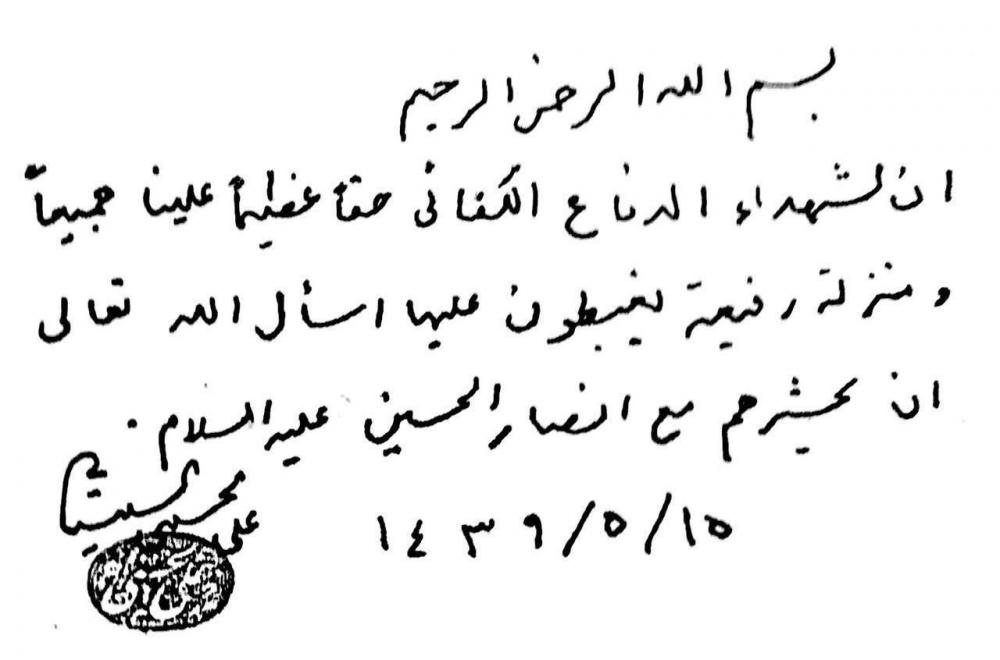 بسم الله الرحمن الرحيم
ان لشهداء الدفاع الكفائي حقاً عظيماً علينا جميعاً
ومنزلة رفيعة يغبطون عليها اسأل الله تعالى
ان يحشرهم مع انصار الحسين عليه السلام .
علي الحسيني السيستاني
١٥/٥/١٤٣٩